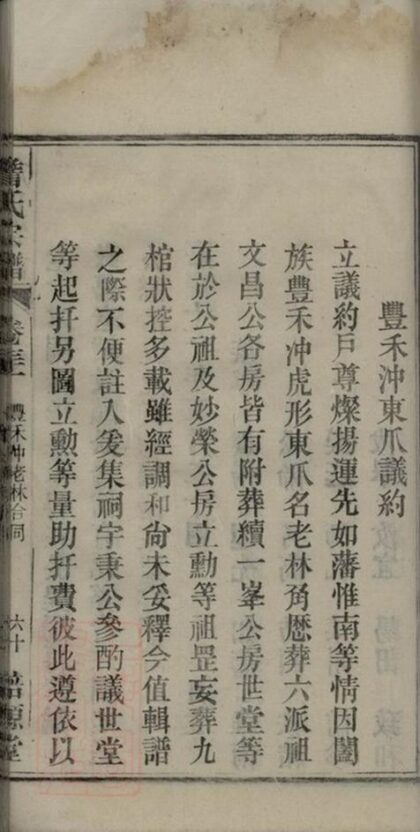 豐禾冲東爪議約
立議約戶尊燦揚運先如藩惟南等情因闔
族豐禾冲虎形東爪名老林角歷葬六派祖
文昌公各房皆有附葬續一峯公房世堂等
在於公祖及妙榮公房立勳等祖罡妄葬九
棺狀控多載雖經調和尙未妥釋今值輯譜
之際不便註入爰集祠宇秉公參酌議世堂
等起扦另圖立勳等量助扦費彼此遵依以
氏宗譜
豐禾冲老林合同
六十